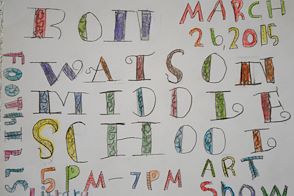 RON
MARCH
26 2015
WATSON
MIDDLE
SCHOOL
FOOTHILLS
5PM-7PM
ART
SHOW
Library